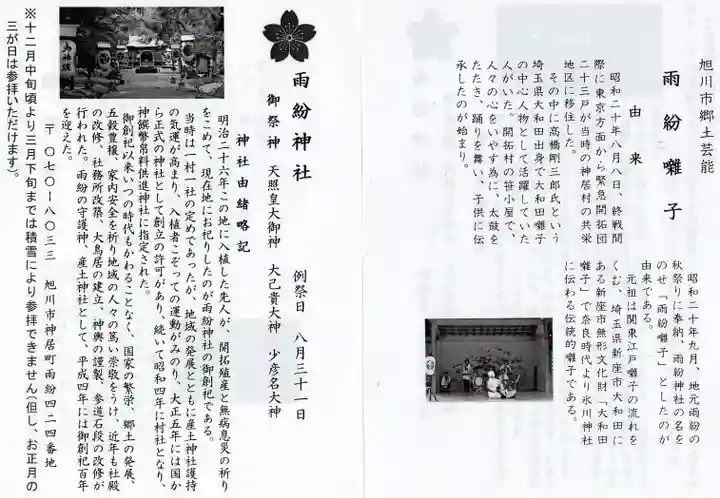 旭川市郷土芸能
雨紛囃子
由来
昭和二十年八月八日、終戦間
際に東京方面から緊急開拓団
二十三戸が当時の神居村の共栄
地区に移住した。
その中に高橋剛三郎氏という
埼玉県大和田出身で大和田囃子
の中心人物として活躍していた
人がいた。開拓村の笹小屋で、
人々の心をいやす為に、太鼓を
たたき、踊りを舞い、子供に伝
承したのが始まり。
昭和二十年九月、地元雨紛の
秋祭りに奉納、雨紛神社の名を
のせ「雨紛囃子」としたのが
由来である。
元祖は関東江戸囃子の流れを
くむ、埼玉県新座市大和田に
ある新座市無形文化財「大和田
囃子」で奈良時代より氷川神社
に伝わる伝統的囃子である。
雨紛神社
例祭日 八月三十一日
御祭神 天照皇大御神 大己貴大神 少彦名大神
神社由緒略記
明治二十六年この地に入植した先人が、開拓殖産と無病息災の祈り
をこめて、現在地にお祀りしたのが雨紛神社の御創祀である。
当時は一村一社の定めであったが、地域の発展とともに産土神社護持
の気運が高まり、入植者こぞっての運動がみのり、大正五年には国か
ら正式の神社として創立の許可があり、続いて昭和四年に村社となり、
神饌幣帛料供進神社に指定された。
御創祀以来いつの時代もかわることなく、国家の繁栄、郷土の発展、
五穀豊穣、家内安全を祈り地域の人々の篤い崇敬をうけ、近年も社殿
の改修、社務所改築、大鳥居の建立、神輿の謹製、参道石段の改修が
行われた。雨紛の守護神、産土神社として、平成四年には御創祀百年
を迎えた。
〒〇七〇ー八〇三三 旭川市神居町雨紛四二四番地
※十二月中旬頃より三月下旬までは積雪により参拝できません(但し、お正月の
三が日は参拝いただけます)。